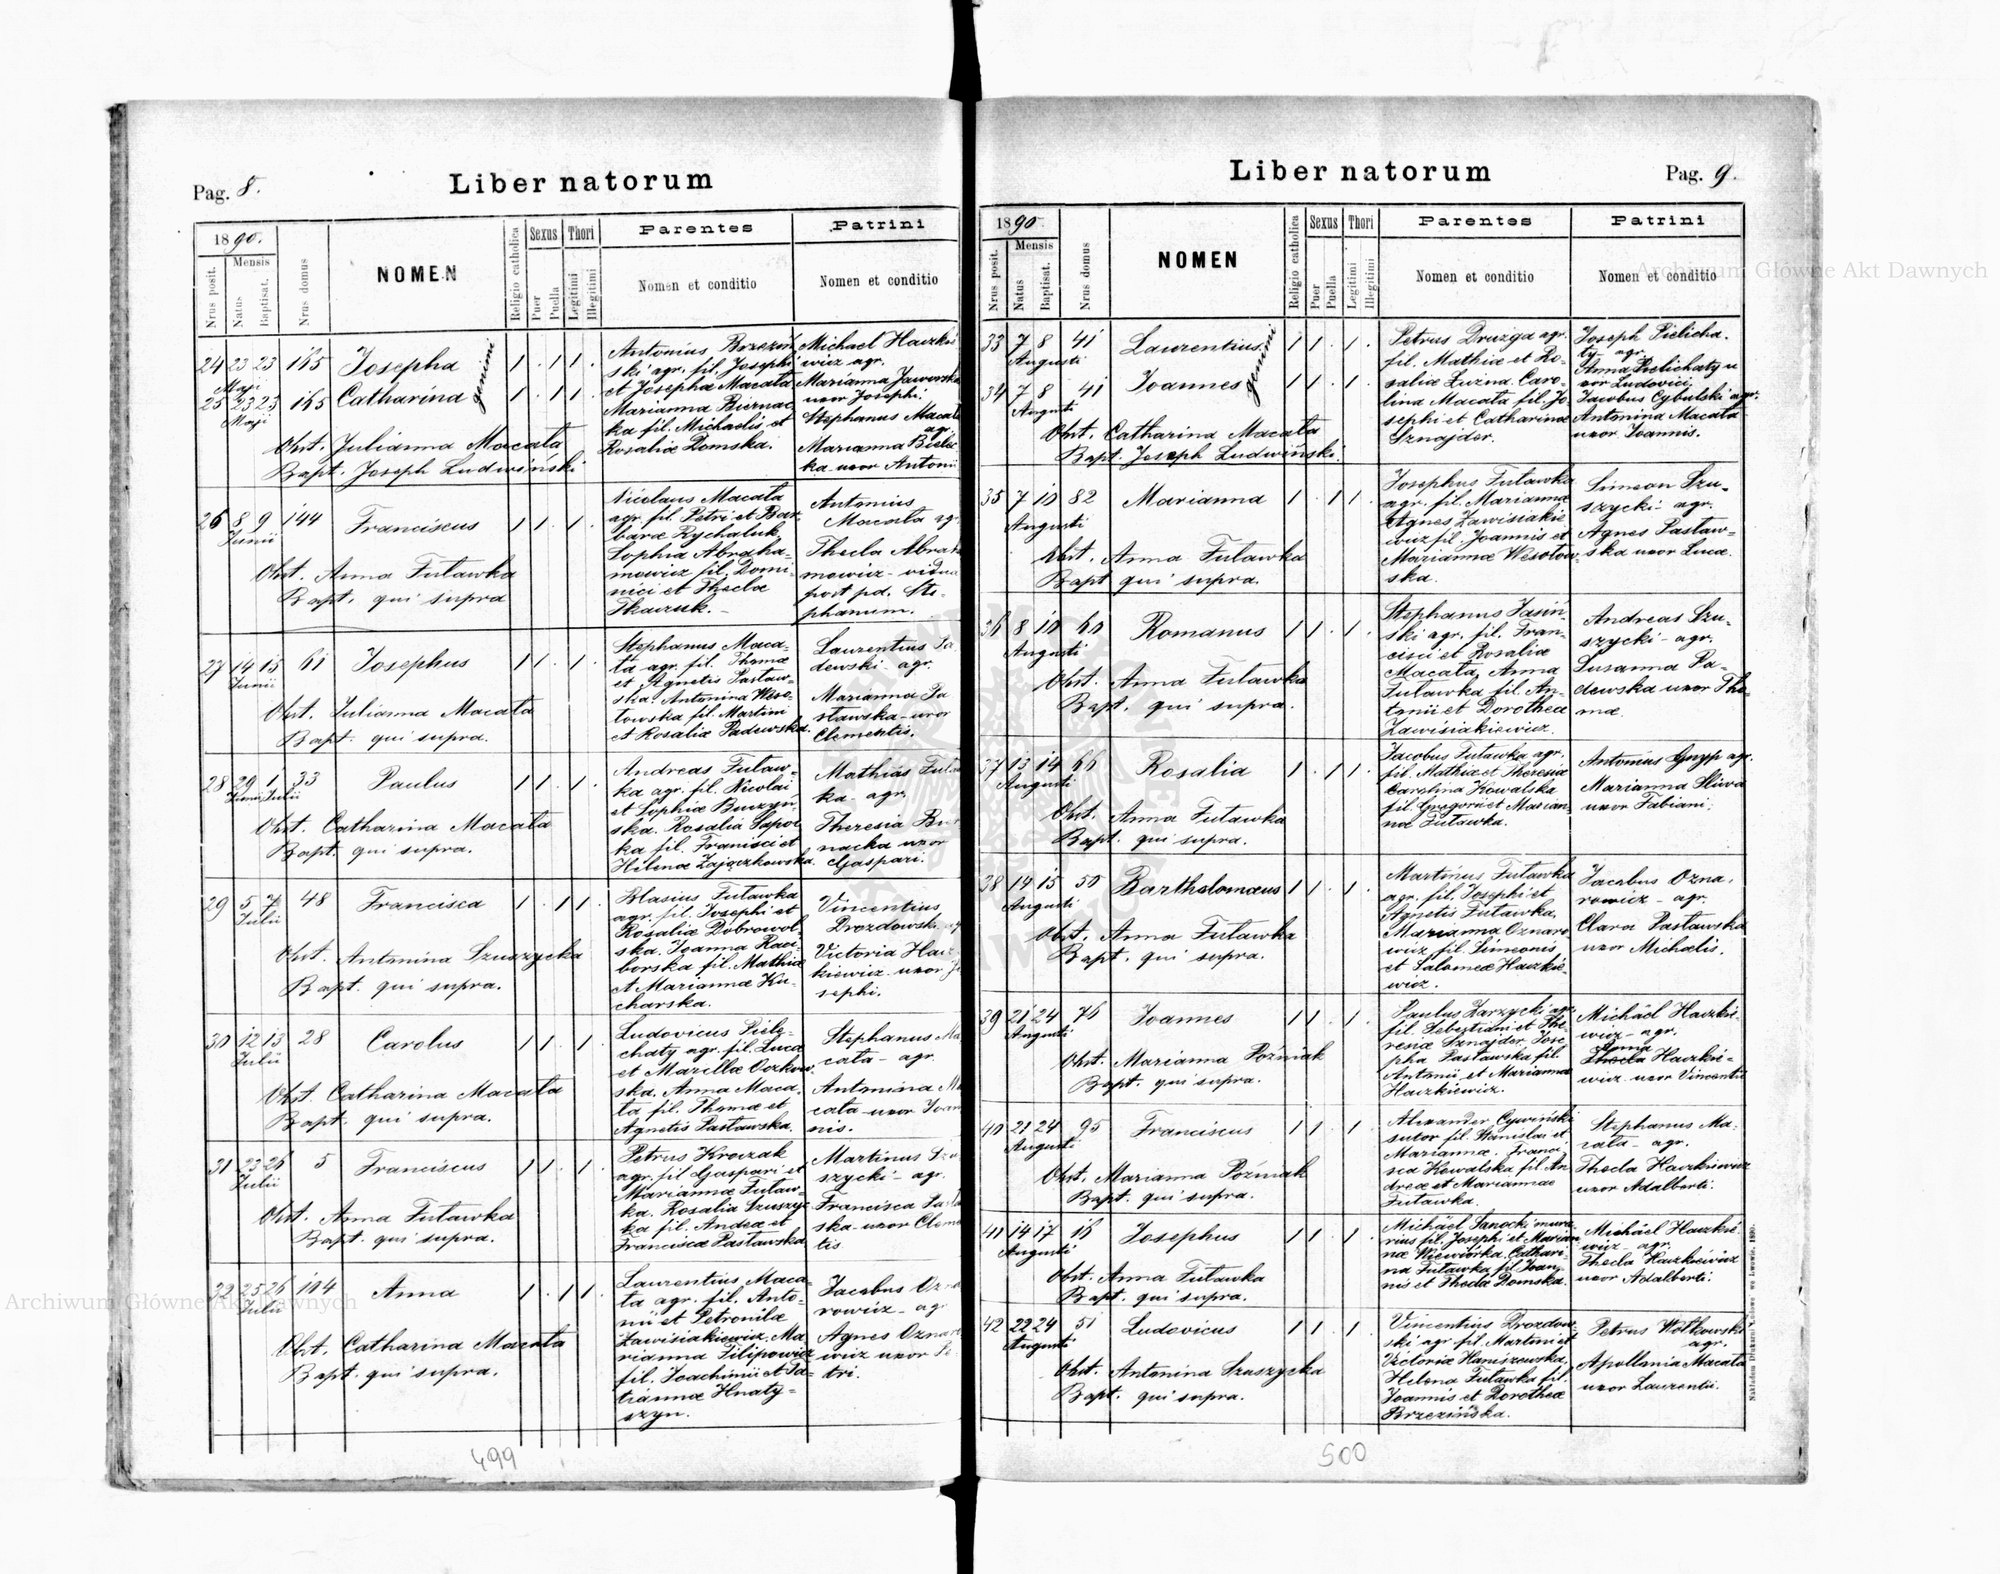 Pag. 8.
Liber natorum
1890.
Nrus posit.
Mensis
Natus
Baptisat.
Nrus domus
NOMEN
Religio catholica
Sexus
Puer
Puella
Thori
Legitimi
Illegitimi
Parentes
Nomen et conditio
Patrini
Nomen et conditio
24 23 23 165 Josepha 1 . 1 1 .
Maji
25 23 23 165 Catharina 1 . 1 1 .
Maji
gemini
Obst. Julianna Macała
Bapt. Joseph Ludwiński
Antonius
ski agr. fil. Josephi
et Josepha Macała
Marianna Biernac
ka fil. Michaelis et
Rosaliæ Domska.
Michael Haczkie
wicz agr.
Marianna Jaworska
uxor Josephi.
Stephanus Macała
agr.
Marianna
ka uxor Antonii
26 8 9 144 Franciscus 1 1 . 1 .
Junii
Obst. Anna Futawka
Bapt. qui supra
Nicolaus Macała
agr. fil. Petri et Bar
baræ Rychaluk,
Sophia Abraha-
mowicz fil. Domi-
nici et Theclæ
Tkaczuk. -
Antonius
Macała agr
Thecla Abra
mowicz - vidua
post pd. Ste-
phanum.
27 14 15 61 Josephus 1 1 . 1 .
Junii
Obst. Julianna Macała
Bapt. qui supra.
Stephanus Maca-
ła agr. fil. Thomæ
et Agnetis Pastaw-
ska. Antonina Weso-
łowska fil. Martini
et Rosaliæ Padewska.
Laurentius Pa
dewski - agr.
Marianna Pa
stawska - uxor
Clementis.
28 29 1 33 Paulus 1 1 . 1 .
Junii Julii
Obst. Catharina Macała
Bapt. qui supra.
Andreas Futaw-
ka agr. fil. Nicolai
et Sophiæ Buczyń-
ska. Rosalia Sapoc
ka fil. Francisci et
Helenæ Zajączkowska.
Mathias Futa
ka - agr.
Theresia
nacka uxor
Gaspari.
29 5 7 48 Francisca 1 . 1 1 .
Julii
Obst. Antonina Szuszycka
Bapt. qui supra.
Blasius Futawka
agr. fil. Josephi et
Rosaliæ Dobrowol
ska. Joanna Raci-
borska fil. Mathiæ
et Mariannæ Ku-
charska.
Vincentius
Drozdowski agr
Victoria Hacz
kiewicz - uxor Jo
sephi.
30 12 13 28 Carolus 1 1 . 1 .
Julii
Obst. Catharina Macała
Bapt. qui supra.
Ludovicus Piele-
chaty agr. fil. Lucæ
et Marellæ Oczkow
ska. Anna Maca-
ła fil. Thomæ et
Agnetis Pastawska.
Stephanus Ma
cała - agr.
Antonina Ma
cała - uxor Joan
nis.
31 23 26 5 Franciscus 1 1 . 1 .
Julii
Obst. Anna Futawka
Bapt. qui supra.
Petrus Kroczak
agr. fil Gaspari et
Mariannæ Futaw-
ka. Rosalia Szuszyc
ka fil. Andreæ et
Franciscæ Pastawska
Martinus Szu
szycki - agr.
Francisca Past
ska - uxor Cleme
tis.
32 25 26 104 Anna 1 . 1 1 .
Julii
Obst. Catharina Macała
Bapt. qui supra.
Laurentius Maca-
ła agr. fil. Anto-
nii et Petronilæ
Zawisiakiewicz. Ma
rianna Filipowicz
fil. Joachimii et Ta-
tiannæ Hnaty-
szyn.
Jacobus Ozna
rowicz - agr
Agnes Oznaro
wicz uxor Pe-
tri.
499
Liber natorum
Pag. 9.
1890
Nrus posit.
Mensis
Natus
Baptisat.
Nrus domus
NOMEN
Religio catholica
Sexus
Puer
Puella
Thori
Legitimi
Illegitimi
Parentes
Nomen et conditio
Patrini
Nomen et conditio
33 7 8 41 Laurentius 1 1 . 1 .
Augusti
34 7 8 41 Joannes 1 1 . 1 .
Augusti
gemini
Obst. Catharina Macała
Bapt. Joseph Ludwiński.
Petrus Druzga agr.
fil. Mathiæ et Ro-
saliæ Łuzna. Caro-
lina Macała fil. Jo
sephi et Catharinæ
Sznajder.
Joseph Pielicha-
ty - agr.
Anna Pielichaty u
xor Ludovici.
Jacobus Cybulski agr.
Antonina Macała
uxor Joannis.
35 7 10 82 Marianna 1 . 1 1 .
Augusti
Obst. Anna Futawka
Bapt qui supra.
Josephus Futawka
agr. fil. Marianna
Agnes Zawisiakie
wicz fil. Joannis et
Mariannæ Wesołow-
ska.
Simeon Szu-
szycki - agr.
Agnes Pastaw-
ska uxor Lucæ.
36 8 10 60 Romanus 1 1 . 1 .
Augusti
Obst. Anna Futawka
Bapt. qui supra.
Stephanus Jasiń-
ski agr. fil. Fran-
cisci et Rosaliæ
Macała, Anna
Futawka fil. An-
tonii et Dorotheæ
Zawisiakiewicz.
Andreas Szu-
szycki - agr.
Susanna Pa-
dewska uxor Tho-
mæ.
37 13 14 66 Rosalia 1 . 1 1 .
Augusti
Obst. Anna Futawka
Bapt. qui supra.
Jacobus Futawka agr.
fil. Mathiæ et Theresiæ
Carolina Kowalska
fil. Gregorii et Marian-
næ Futawka.
Antonius Gnyp agr.
Marianna Śliwa
uxor Fabiani.
38 14 15 50 Bartholomæus 1 1 . 1 .
Augusti
Obst. Anna Futawka
Bapt. qui supra.
Martinus Futawka
agr. fil. Josephi et
Agnetis Futawka,
Marianna Oznaro
wicz fil. Simeonis
et Salomeæ Haczkie-
wicz.
Jacobus Ozna-
rowicz - agr.
Clara Pastawska
uxor Michælis.
39 21 24 76 Joannes 1 1 . 1 .
Augusti
Obst. Marianna Poźniak
Bapt. qui supra.
Paulus Zarzycki agr.
fil. Sebestiani et The-
resiæ Sznajder. Jose-
pha Pastawska fil.
Antonii et Mariannæ
Haczkiewicz.
Michäel Haczkie-
wicz - agr.
Anna
Thecla Haczkie-
wicz uxor Vincentii
40 21 24 95 Franciscus 1 1 . 1 .
Augusti
Obst. Marianna Poźniak
Bapt. qui supra.
Alexander Cywiński
sutor fil. Stanislai et
Mariannæ. Franci-
sca Kowalska fil. An
dreæ et Mariannæ
Futawka.
Stephanus Ma-
cała - agr.
Thecla Haczkiewicz
uxor Adalberti.
41 14 17 16 Josephus 1 1 . 1 .
Augusti
Obst. Anna Futawka
Bapt. qui supra.
Michäel Sanocki mura-
rius fil. Josephi et Marian
næ Wiewiórka. Cathari-
na Futawka fil. Joan-
nis et Theclæ Domska.
Michäel Haczkie-
wicz - agr.
Thecla Haczkiewicz
uxor Adalberti.
42 22 24 51 Ludovicus 1 1 . 1 .
Augusti
Obst. Antonina Szuszycka
Bapt. qui supra.
Vincentius Drozdow-
ski agr. fil. Martini et
Victoriæ Haniszewska,
Helena Futawka fil.
Joannis et Dorotheæ
Brzezińska.
Petrus Wołkowski
agr.
Apollonia Macała
uxor Laurentii.
500
Archiwum Główne Akt Dawnych
Archiwum Główne Akt Dawnych